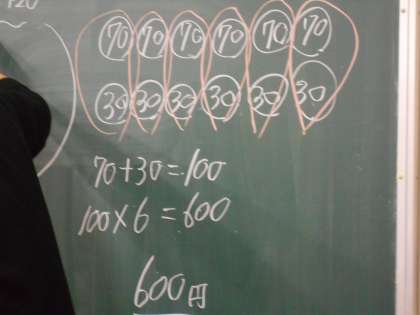 70 70 70 70 70 70
30 30 30 30 30 30
70+30=100
100×6=600
600円